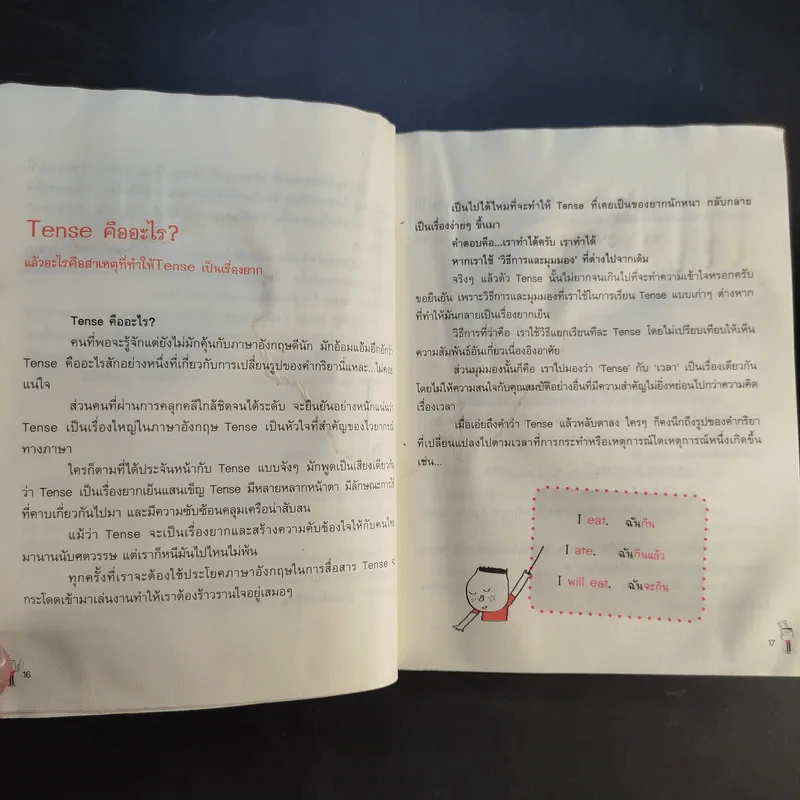 Tense คืออะไร?
แล้วอะไรคือสาเหตุที่ทำให้Tense เป็นเรื่องยาก
Tense คืออะไร?
คนที่พอจะรู้จักแต่ยังไม่มักคุ้นกับภาษาอังกฤษดีนัก มักอ้อมแอ้มอึกอักว่า
Tense คืออะไรสักอย่างหนึ่งที่เกี่ยวกับการเปลี่ยนรูปของคำกริยานี่แหละ...ไม่ค่อย
แน่ใจ
ส่วนคนที่ผ่านการคลุกคลีใกล้ชิดจนได้ระดับ จะยืนยันอย่างหนักแน่นว่า
Tense เป็นเรื่องใหญ่ในภาษาอังกฤษ Tense เป็นหัวใจที่สำคัญของไวยากรณ์
ทางภาษา
ใครก็ตามที่ได้ประจันหน้ากับ Tense แบบจังๆ มักพูดเป็นเสียงเดียวกัน
ว่า Tense เป็นเรื่องยากเย็นแสนเข็ญ Tense มีหลายหลากหน้าตา มีลักษณะการใช้
ที่คาบเกี่ยวกันไปมา และมีความซับซ้อนคลุมเครือน่าสับสน
แม้ว่า Tense จะเป็นเรื่องยากและสร้างความคับข้องใจให้กับคนไทย
มานานนับศตวรรษ แต่เราก็หนีมันไปไหนไม่พ้น
ทุกครั้งที่เราจะต้องใช้ประโยคภาษาอังกฤษในการสื่อสาร Tense
กระโดดเข้ามาเล่นงานทำให้เราต้องร้าวรานใจอยู่เสมอๆ
16
เป็นไปได้ไหมที่จะทำให้ Tense ที่เคยเป็นของยากนักหนา กลับกลาย
เป็นเรื่องง่ายๆ ขึ้นมา
คำตอบคือ...เราทำได้ครับ เราทำได้
หากเราใช้ 'วิธีการและมุมมอง' ที่ต่างไปจากเดิม
จริงๆ แล้วตัว Tense นั้นไม่ยากจนเกินไปที่จะทำความเข้าใจหรอกครับ
ขอยืนยัน เพราะวิธีการและมุมมองที่เราใช้ในการเรียน Tense แบบเก่าๆ ต่างหาก
ที่ทำให้มันกลายเป็นเรื่องยากเย็น
วิธีการที่ว่าคือ เราใช้วิธีแยกเรียนทีละ Tense โดยไม่เปรียบเทียบให้เห็น
ความสัมพันธ์อันเกี่ยวเนื่องอิงอาศัย
ส่วนมุมมองนั้นก็คือ เราไปมองว่า 'Tense' กับ 'เวลา' เป็นเรื่องเดียวกัน
โดยไม่ให้ความสนใจกับคุณสมบัติอย่างอื่นที่มีความสำคัญไม่ยิ่งหย่อนไปกว่าความคิด
เรื่องเวลา
เมื่อเอ่ยถึงคำว่า Tense แล้วหลับตาลง ใครๆ ก็คงนึกถึงรูปของคำกริยา
ที่เปลี่ยนแปลงไปตามเวลาที่การกระทำหรือเหตุการณ์ใดเหตุการณ์หนึ่งเกิดขึ้น
เช่น...
I eat. ฉันกิน
I ate. ฉันกินแล้ว
I will eat. ฉันจะกิน
17